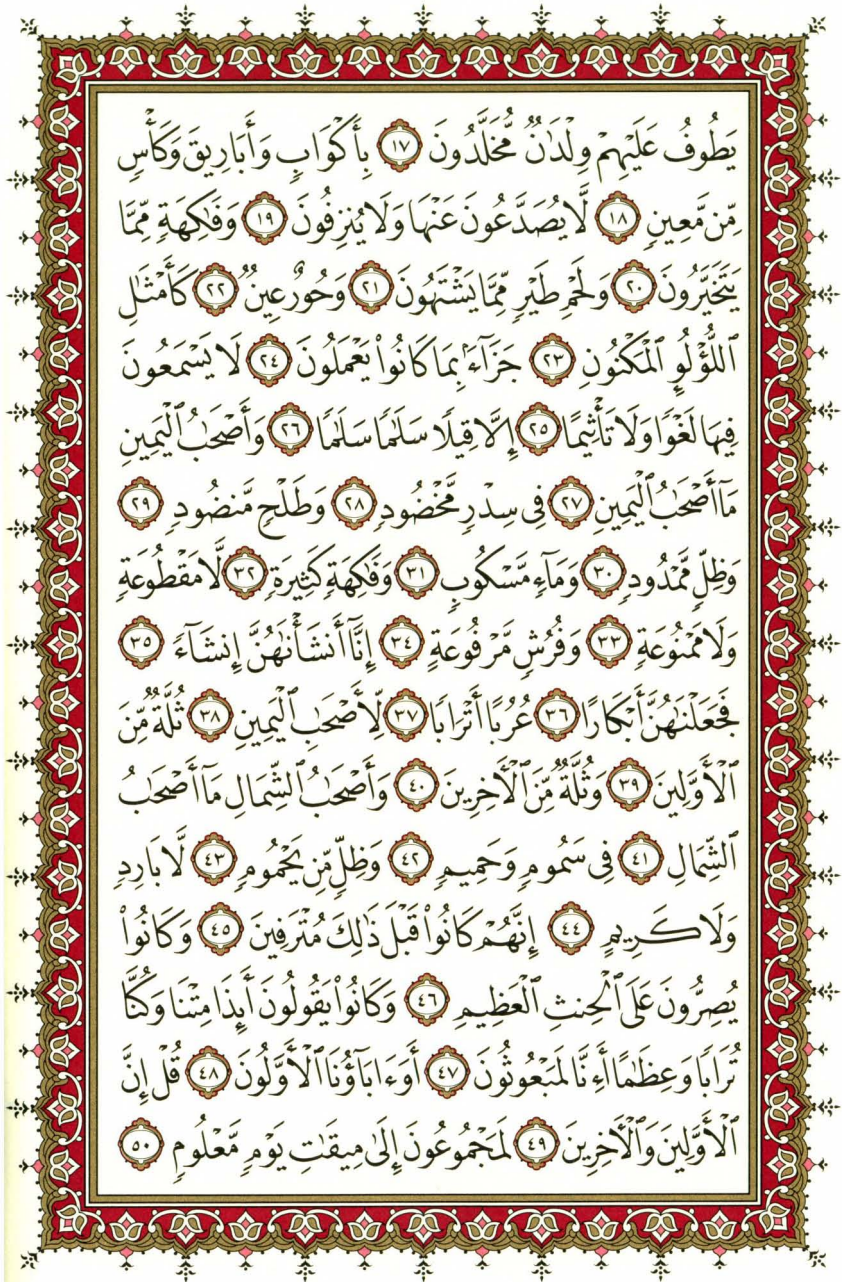 يَطُوفُ عَلَيْهِمْ وِلْدَٰنٌ مُّخَلَّدُونَ ١٧ بِأَكْوَابٍ وَأَبَارِيقَ وَكَأْسٍ
مِّن مَّعِينٍ ١٨ لَّا يُصَدَّعُونَ عَنْهَا وَلَا يُنزِفُونَ ١٩ وَفَٰكِهَةٍ مِّمَّا
يَتَخَيَّرُونَ ٢٠ وَلَحْمِ طَيْرٍ مِّمَّا يَشْتَهُونَ ٢١ وَحُورٌ عِينٌ ٢٢ كَأَمْثَٰلِ
ٱللُّؤْلُؤِ ٱلْمَكْنُونِ ٢٣ جَزَآءًۢ بِمَا كَانُوا۟ يَعْمَلُونَ ٢٤ لَا يَسْمَعُونَ
فِيهَا لَغْوًا وَلَا تَأْثِيمًا ٢٥ إِلَّا قِيلًا سَلَٰمًا سَلَٰمًا ٢٦ وَأَصْحَٰبُ ٱلْيَمِينِ
مَآ أَصْحَٰبُ ٱلْيَمِينِ ٢٧ فِى سِدْرٍ مَّخْضُودٍ ٢٨ وَطَلْحٍ مَّنضُودٍ ٢٩
وَظِلٍّ مَّمْدُودٍ ٣٠ وَمَآءٍ مَّسْكُوبٍ ٣١ وَفَٰكِهَةٍ كَثِيرَةٍ ٣٢ لَّا مَقْطُوعَةٍ
وَلَا مَمْنُوعَةٍ ٣٣ وَفُرُشٍ مَّرْفُوعَةٍ ٣٤ إِنَّآ أَنشَأْنَٰهُنَّ إِنشَآءً ٣٥
فَجَعَلْنَٰهُنَّ أَبْكَارًا ٣٦ عُرُبًا أَتْرَابًا ٣٧ لِّأَصْحَٰبِ ٱلْيَمِينِ ٣٨ ثُلَّةٌ مِّنَ
ٱلْأَوَّلِينَ ٣٩ وَثُلَّةٌ مِّنَ ٱلْـَٔاخِرِينَ ٤٠ وَأَصْحَٰبُ ٱلشِّمَالِ مَآ أَصْحَٰبُ
ٱلشِّمَالِ ٤١ فِى سَمُومٍ وَحَمِيمٍ ٤٢ وَظِلٍّ مِّن يَحْمُومٍ ٤٣ لَّا بَارِدٍ
وَلَا كَرِيمٍ ٤٤ إِنَّهُمْ كَانُوا۟ قَبْلَ ذَٰلِكَ مُتْرَفِينَ ٤٥ وَكَانُوا۟
يُصِرُّونَ عَلَى ٱلْحِنثِ ٱلْعَظِيمِ ٤٦ وَكَانُوا۟ يَقُولُونَ أَئِذَا مِتْنَا وَكُنَّا
تُرَابًا وَعِظَٰمًا أَءِنَّا لَمَبْعُوثُونَ ٤٧ أَوَءَابَآؤُنَا ٱلْأَوَّلُونَ ٤٨ قُلْ إِنَّ
ٱلْأَوَّلِينَ وَٱلْـَٔاخِرِينَ ٤٩ لَمَجْمُوعُونَ إِلَىٰ مِيقَٰتِ يَوْمٍ مَّعْلُومٍ ٥٠